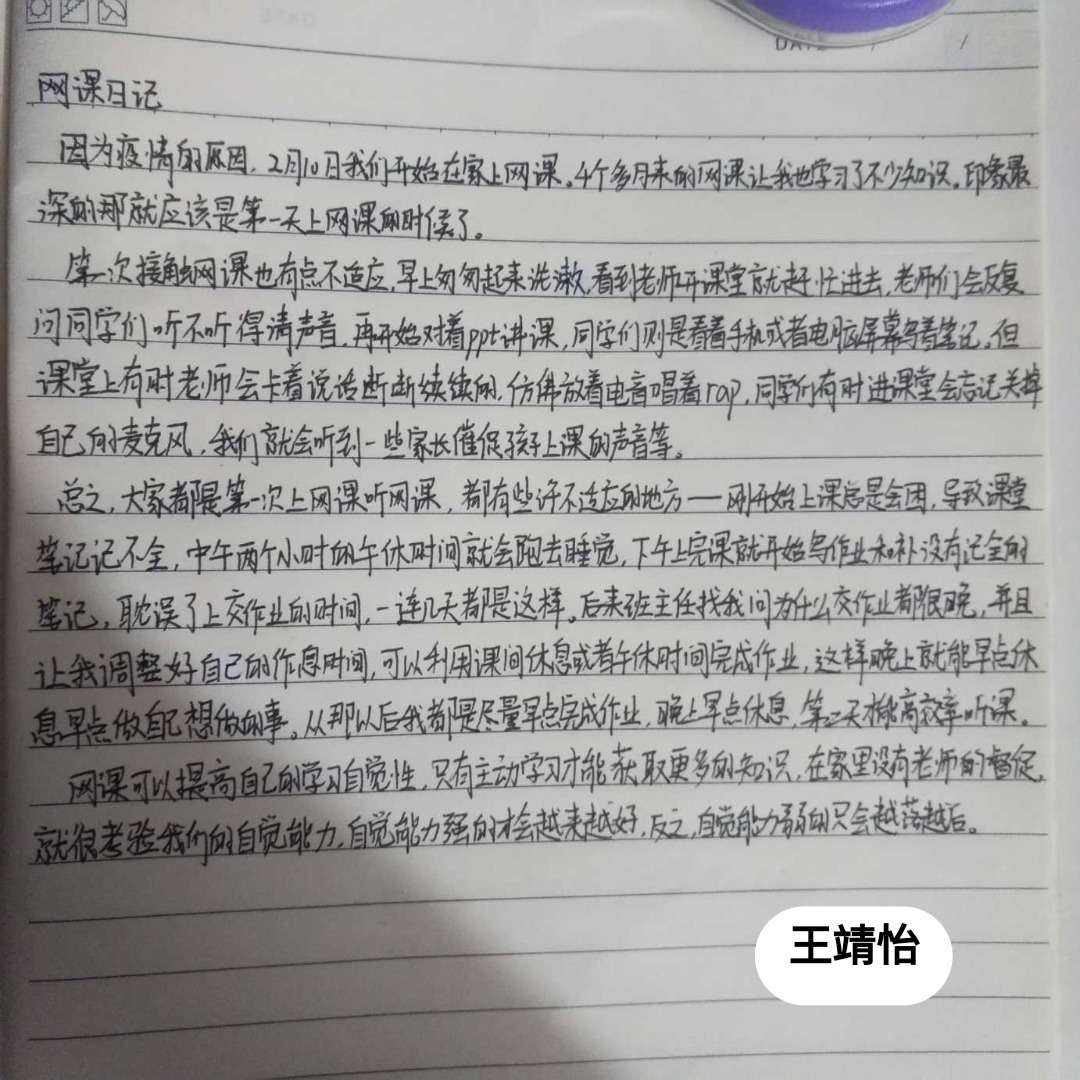 DATE / /
网课日记
因为疫情的原因，2月10日我们开始在家上网课。4个多月来的网课让我也学习了不少知识。印象最
深的那就应该是第一天上网课的时候了。
第一次接触网课也有点不适应，早上匆匆起来洗漱，看到老师开课堂就赶忙进去，老师们会反复
问同学们听不听得清声音，再开始对着ppt讲课，同学们则是看着手机或者电脑屏幕写着笔记。但
课堂上有时老师会卡着说话断断续续的，仿佛放着电音唱着rap，同学们有时进课堂会忘记关掉
自己的麦克风，我们就会听到一些家长催促孩子上课的声音等。
总之，大家都是第一次上网课听网课，都有些许不适应的地方——刚开始上课总是会困，导致课堂
笔记记不全，中午两个小时的午休时间就会跑去睡觉，下午上完课就开始写作业和补没有记全的
笔记，耽误了上交作业的时间，一连几天都是这样。后来班主任找我问为什么交作业都很晚，并且
让我调整好自己的作息时间，可以利用课间休息或者午休时间完成作业，这样晚上就能早点休
息早点做自己想做的事。从那以后我都是尽量早点完成作业，晚上早点休息，第二天才能高效率听课。
网课可以提高自己的学习自觉性，只有主动学习才能获取更多的知识，在家里没有老师的督促，
就很考验我们的自觉能力，自觉能力强的才会越来越好，反之，自觉能力弱的只会越落越后。
王靖怡